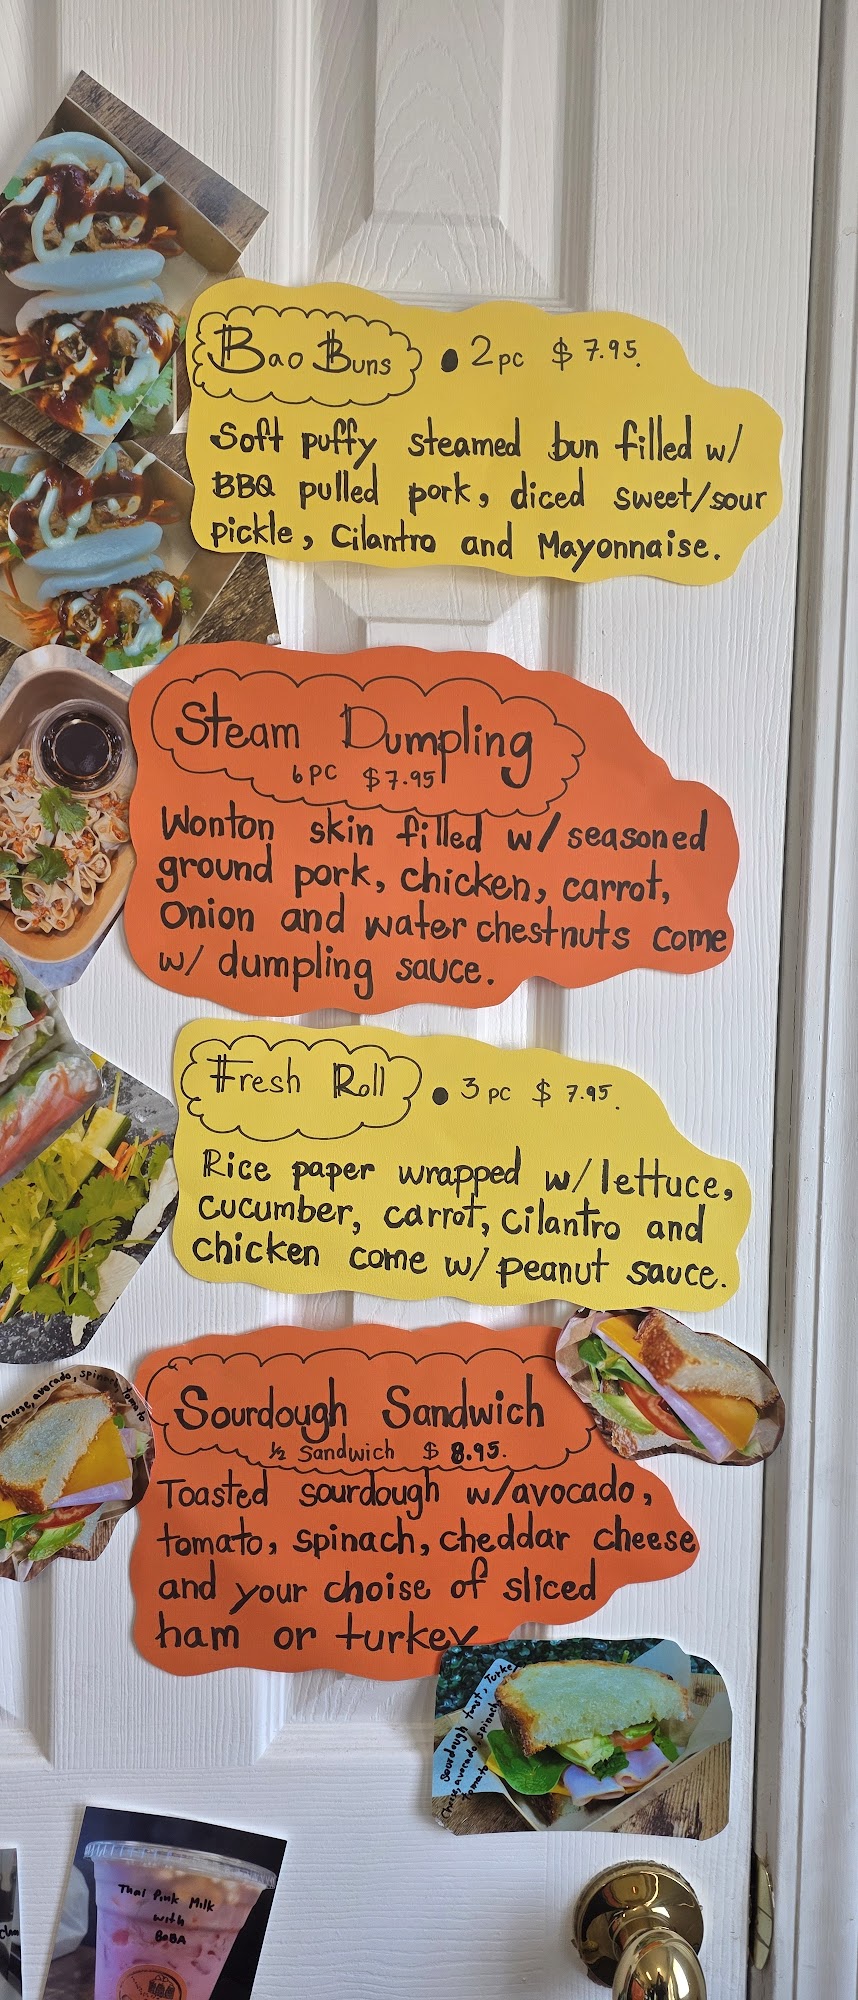 Bao Buns • 2pc $7.95.
Soft puffy steamed bun filled w/
BBQ pulled pork, diced sweet/sour
pickle, Cilantro and Mayonnaise.
Steam Dumpling
6 PC $7.95
Wonton skin filled w/ seasoned
ground pork, chicken, carrot,
Onion and water chestnuts come
w/ dumpling sauce.
Fresh Roll • 3 pc $ 7.95.
Rice paper wrapped w/ lettuce,
cucumber, carrot, cilantro and
chicken come w/ peanut sauce.
Cheese, avocado, spinach, tomato
Sourdough Sandwich
½ Sandwich $ 8.95.
Toasted sourdough w/avocado,
tomato, spinach, cheddar cheese
and your choise of sliced
ham or turkey
Sourdough toast, Turkey
Cheese, avocado, spinach
tomato
Thai Pink Milk
with
BOBA